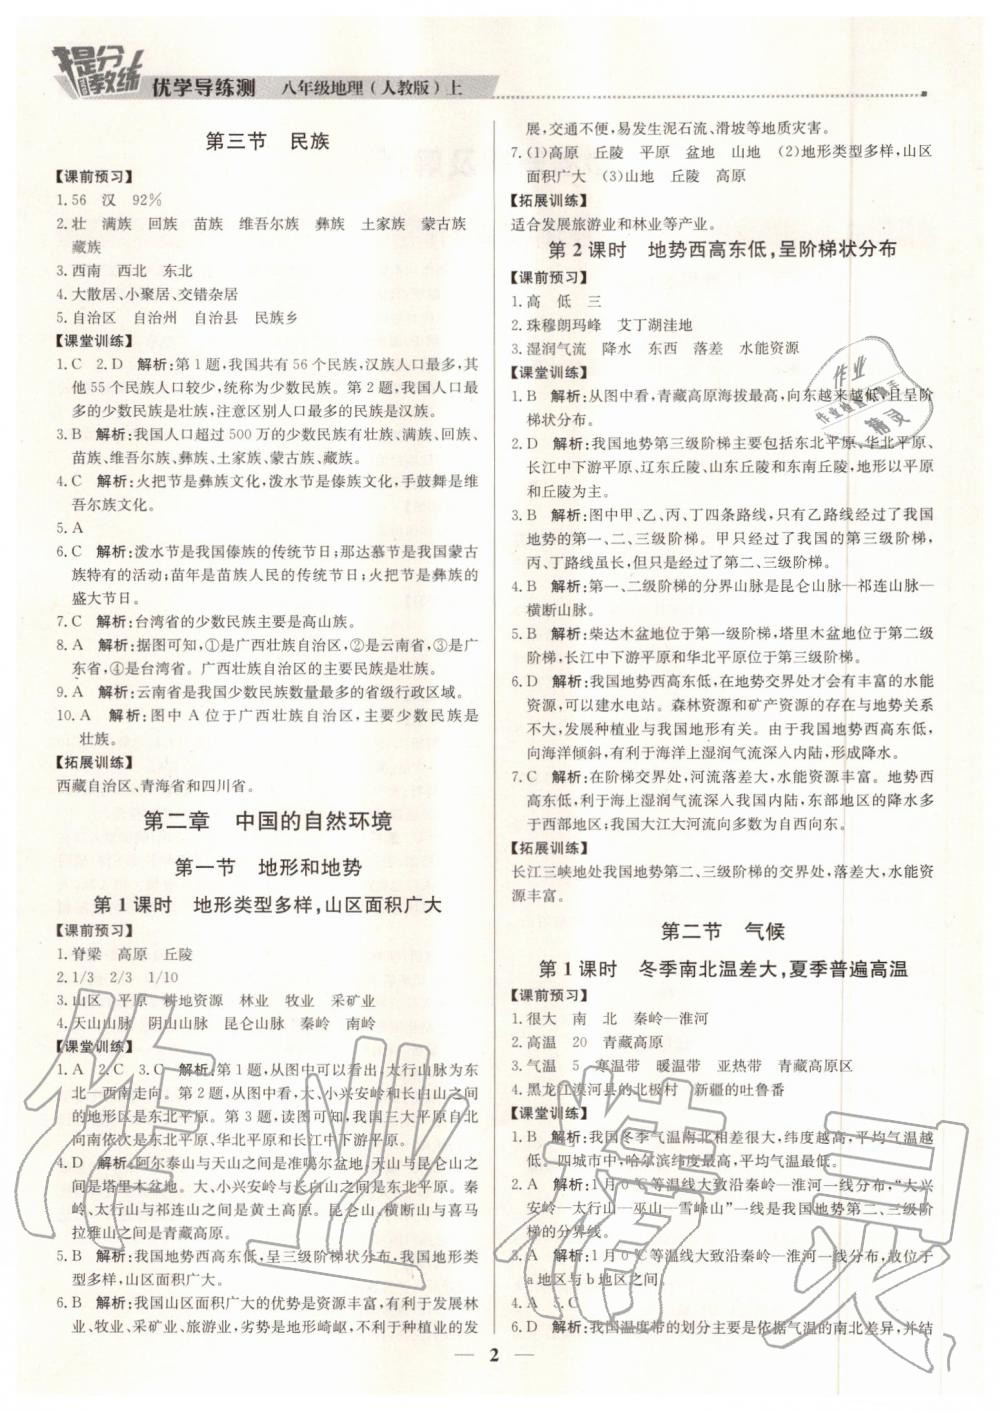 提分教练 优学导练测 八年级地理(人教版)上
第三节 民族
【课前预习】
1. 56 汉 92%
2. 壮 满族 回族 苗族 维吾尔族 彝族 土家族 蒙古族
藏族
3. 西南 西北 东北
4. 大散居、小聚居、交错杂居
5. 自治区 自治州 自治县 民族乡
【课堂训练】
1. C 2. D 解析:第1题,我国共有56个民族,汉族人口最多,其
他55个民族人口较少,统称为少数民族。第2题,我国人口最
多的少数民族是壮族,注意区别人口最多的民族是汉族。
3. B 解析:我国人口超过500万的少数民族有壮族、满族、回族、
苗族、维吾尔族、彝族、土家族、蒙古族、藏族。
4. C 解析:火把节是彝族文化,泼水节是傣族文化,手鼓舞是维
吾尔族文化。
5. A
6. C 解析:泼水节是我国傣族的传统节日;那达慕节是我国蒙古
族特有的活动;苗年是苗族人民的传统节日;火把节是彝族的
盛大节日。
7. C 解析:台湾省的少数民族主要是高山族。
8. A 解析:据图可知,①是广西壮族自治区,②是云南省,③是广
东省,④是台湾省。广西壮族自治区的主要民族是壮族。
9. A 解析:云南省是我国少数民族数量最多的省级行政区域。
10. A 解析:图中A位于广西壮族自治区,主要少数民族是
壮族。
【拓展训练】
西藏自治区、青海省和四川省。
第二章 中国的自然环境
第一节 地形和地势
第1课时 地形类型多样,山区面积广大
【课前预习】
1. 脊梁 高原 丘陵
2. 1/3 2/3 1/10
3. 山区 平原 耕地资源 林业 牧业 采矿业
4. 天山山脉 阴山山脉 昆仑山脉 秦岭 南岭
【课堂训练】
1. A 2. C 3. C 解析:第1题,从图中可以看出,太行山脉为东
北—西南走向。第2题,从图中看,大、小兴安岭和长白山之间
的地形区是东北平原。第3题,读图可知,我国三大平原自北
向南依次是东北平原、华北平原和长江中下游平原。
4. D 解析:阿尔泰山与天山之间是准噶尔盆地;天山与昆仑山之
间是塔里木盆地。大、小兴安岭与长白山之间是东北平原。秦
岭、太行山与祁连山之间是黄土高原。昆仑山、横断山与喜马
拉雅山之间是青藏高原。
5. B 解析:我国地势西高东低,呈三级阶梯状分布,我国地形类
型多样,山区面积广大。
6. B 解析:我国山区面积广大的优势是资源丰富,有利于发展林
业、牧业、采矿业、旅游业,劣势是地形崎岖,不利于种植业的发
展,交通不便,易发生泥石流、滑坡等地质灾害。
7. (1)高原 丘陵 平原 盆地 山地 (2)地形类型多样,山区
面积广大 (3)山地 丘陵 高原
【拓展训练】
适合发展旅游业和林业等产业。
第2课时 地势西高东低,呈阶梯状分布
【课前预习】
1. 高 低 三
2. 珠穆朗玛峰 艾丁湖洼地
3. 湿润气流 降水 东西 落差 水能资源
【课堂训练】
1. B 解析:从图中看,青藏高原海拔最高,向东越来越低,且呈阶
梯状分布。
2. D 解析:我国地势第三级阶梯主要包括东北平原、华北平原、
长江中下游平原、辽东丘陵、山东丘陵和东南丘陵,地形以平原
和丘陵为主。
3. B 解析:图中甲、乙、丙、丁四条路线,只有乙路线经过了我国
地势的第一、二、三级阶梯。甲只经过了我国的第三级阶梯,
丙、丁路线虽长,但只是经过了第二、三级阶梯。
4. B 解析:第一、二级阶梯的分界山脉是昆仑山脉—祁连山脉—
横断山脉。
5. B 解析:柴达木盆地位于第一级阶梯,塔里木盆地位于第二级
阶梯,长江中下游平原和华北平原位于第三级阶梯。
6. D 解析:我国地势西高东低,在地势交界处才会有丰富的水能
资源,可以建水电站。森林资源和矿产资源的存在与地势关系
不大,发展种植业与我国地形有关。由于我国地势西高东低,
向海洋倾斜,有利于海洋上湿润气流深入内陆,形成降水。
7. C 解析:在阶梯交界处,河流落差大,水能资源丰富。地势西
高东低,利于海上湿润气流深入我国内陆,东部地区的降水多
于西部地区;我国大江大河流向多数为自西向东。
【拓展训练】
长江三峡地处我国地势第二、三级阶梯的交界处,落差大,水能资
源丰富。
第二节 气候
第1课时 冬季南北温差大,夏季普遍高温
【课前预习】
1. 很大 南 北 秦岭—淮河
2. 高温 20 青藏高原
3. 气温 5 寒温带 暖温带 亚热带 青藏高原区
4. 黑龙江漠河县的北极村 新疆的吐鲁番
【课堂训练】
1. B 解析:我国冬季气温南北相差很大,纬度越高,平均气温越
低。四城市中,哈尔滨纬度最高,平均气温最低。
2. A 解析:1月0℃等温线大致沿秦岭—淮河一线分布,“大兴
安岭—太行山—巫山—雪峰山”一线是我国地势第二、三级阶
梯的分界线。
3. A 解析:1月0℃等温线大致沿秦岭—淮河一线分布,故位于
a地区与b地区之间。
4. A 5. C
6. D 解析:我国温度带的划分主要是依据气温的南北差异,并结
2
作业
作业检查小助手
精灵
作业精灵